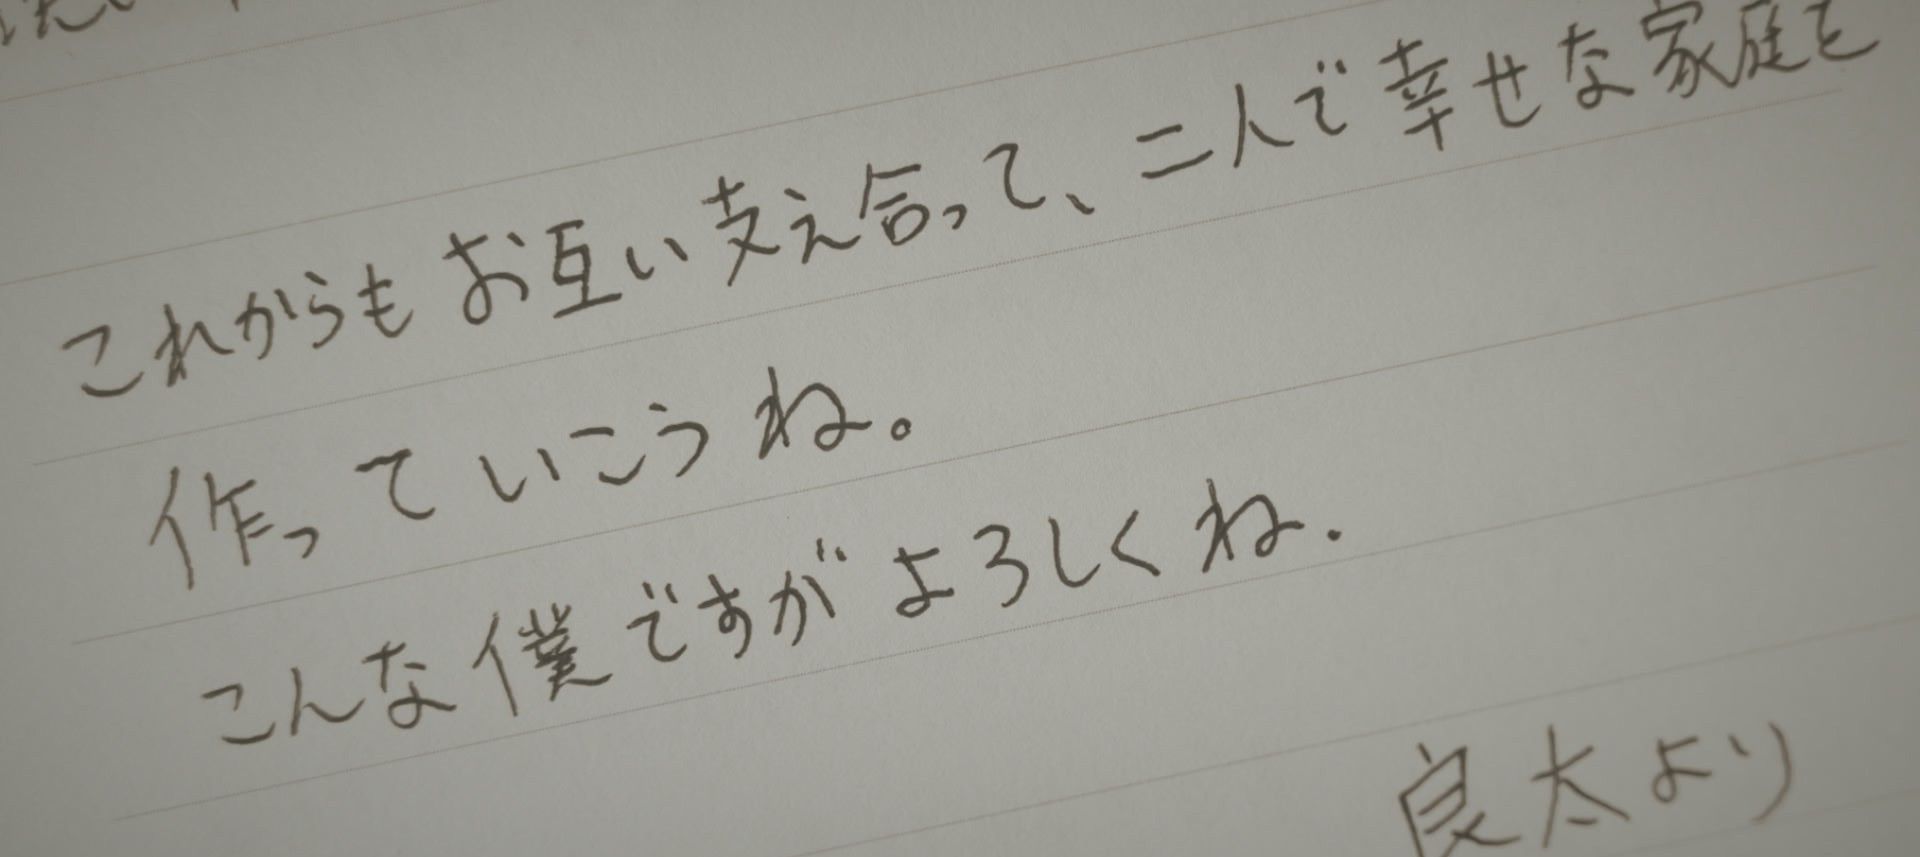 これからもお互い支え合って、二人で幸せな家庭を
作っていこうね。
こんな僕ですがよろしくね.
良太より